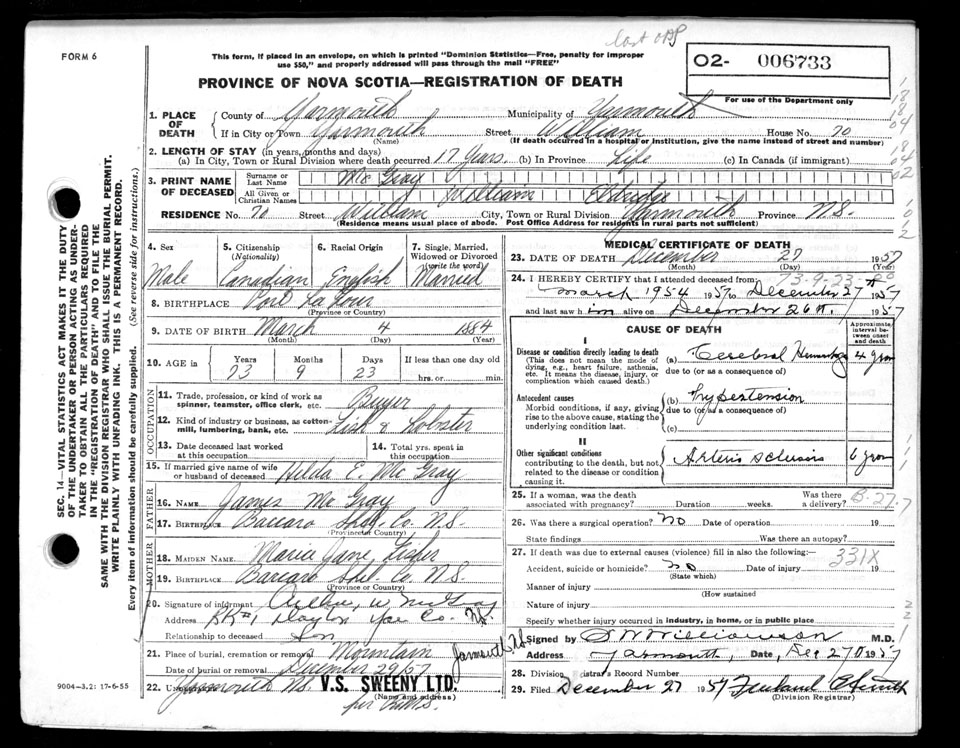 FORM 6
This form, if placed in an envelope, on which is printed "Dominion Statistics—Free, penalty for improper
use $50," and properly addressed will pass through the mail "FREE"
O2- 006733
For use of the Department only
PROVINCE OF NOVA SCOTIA—REGISTRATION OF DEATH
1. PLACE OF DEATH
County of Yarmouth Municipality of Yarmouth
If in City or Town Yarmouth Street William House No. 70
(Name) (If death occurred in a hospital or institution, give the name instead of street and number)
2. LENGTH OF STAY (in years, months and days)
(a) In City, Town or Rural Division where death occurred 17 Years. (b) In Province Life (c) In Canada (if immigrant)
3. PRINT NAME OF DECEASED
Surname or Last Name Mc Gray
All Given or Christian Names William Eldridge
RESIDENCE No. 70 Street William City, Town or Rural Division Yarmouth Province N.S.
(Residence means usual place of abode. Post Office Address for residents in rural parts not sufficient)
SEC. 14—VITAL STATISTICS ACT MAKES IT THE DUTY
OF THE UNDERTAKER OR PERSON ACTING AS UNDER-
TAKER TO OBTAIN ALL THE PARTICULARS REQUIRED
IN THE "REGISTRATION OF DEATH" AND TO FILE THE
SAME WITH THE DIVISION REGISTRAR WHO SHALL ISSUE THE BURIAL PERMIT.
WRITE PLAINLY WITH UNFADING INK. THIS IS A PERMANENT RECORD.
Every item of information should be carefully supplied. (See reverse side for instructions.)
4. Sex 5. Citizenship (Nationality) 6. Racial Origin 7. Single, Married, Widowed or Divorced (write the word)
Male Canadian English Married
8. BIRTHPLACE Port La Tour
(Province or Country)
9. DATE OF BIRTH March 4 1884
(Month) (Day) (Year)
10. AGE in Years Months Days If less than one day old
73 9 23 hrs. or min.
OCCUPATION
11. Trade, profession, or kind of work as spinner, teamster, office clerk, etc. Buyer
12. Kind of industry or business, as cotton-mill, lumbering, bank, etc. Fish & Lobster
13. Date deceased last worked at this occupation
14. Total yrs. spent in this occupation
15. If married give name of wife or husband of deceased Hilda E. Mc Gray
FATHER
16. Name James Mc Gray
17. Birthplace Baccaro Shel. Co. N.S.
(Province or Country)
MOTHER
18. MAIDEN NAME Jane
19. BIRTHPLACE Baccaro Shel. Co. N.S.
(Province or Country)
20. Signature of informant W. McGray
Address RR#1 Dayton Yar Co. N.S.
Relationship to deceased Son
21. Place of burial, cremation or removal Mountain Yarmouth N.S.
Date of burial or removal December 29 57
22. Undertaker Yarmouth N.S. V.S. SWEENY LTD.
(Name and address)
9004—3.2: 17-6-55
MEDICAL CERTIFICATE OF DEATH
23. DATE OF DEATH December 27 1957
(Month) (Day) (Year)
24. I HEREBY CERTIFY that I attended deceased from
March 1954 1957 to December 27th 1957
and last saw him alive on December 26th. 1957
CAUSE OF DEATH
Approximate interval between onset and death
I
Disease or condition directly leading to death
(This does not mean the mode of dying, e.g., heart failure, asthenia, etc. It means the disease, injury, or complication which caused death.)
(a) Cerebral Hemorrhage 4 years
due to (or as a consequence of)
Antecedent causes
Morbid conditions, if any, giving rise to the above cause, stating the underlying condition last.
(b) Hypertension
due to (or as a consequence of)
(c)
II
Other significant conditions
contributing to the death, but not related to the disease or condition causing it.
Arterio sclerosis 6 years
25. If a woman, was the death associated with pregnancy? Duration weeks. Was there a delivery?
26. Was there a surgical operation? No Date of operation 19
State findings Was there an autopsy?
27. If death was due to external causes (violence) fill in also the following:—
331X
Accident, suicide or homicide? No Date of injury 19
(State which)
Manner of injury
(How sustained
Nature of injury
Specify whether injury occurred in industry, in home, or in public place
Signed by Williamson M.D.
Address Yarmouth, Date, Dec 27th 1957
28. Division Registrar's Record Number
29. Filed December 27 1957 Smith
(Division Registrar)